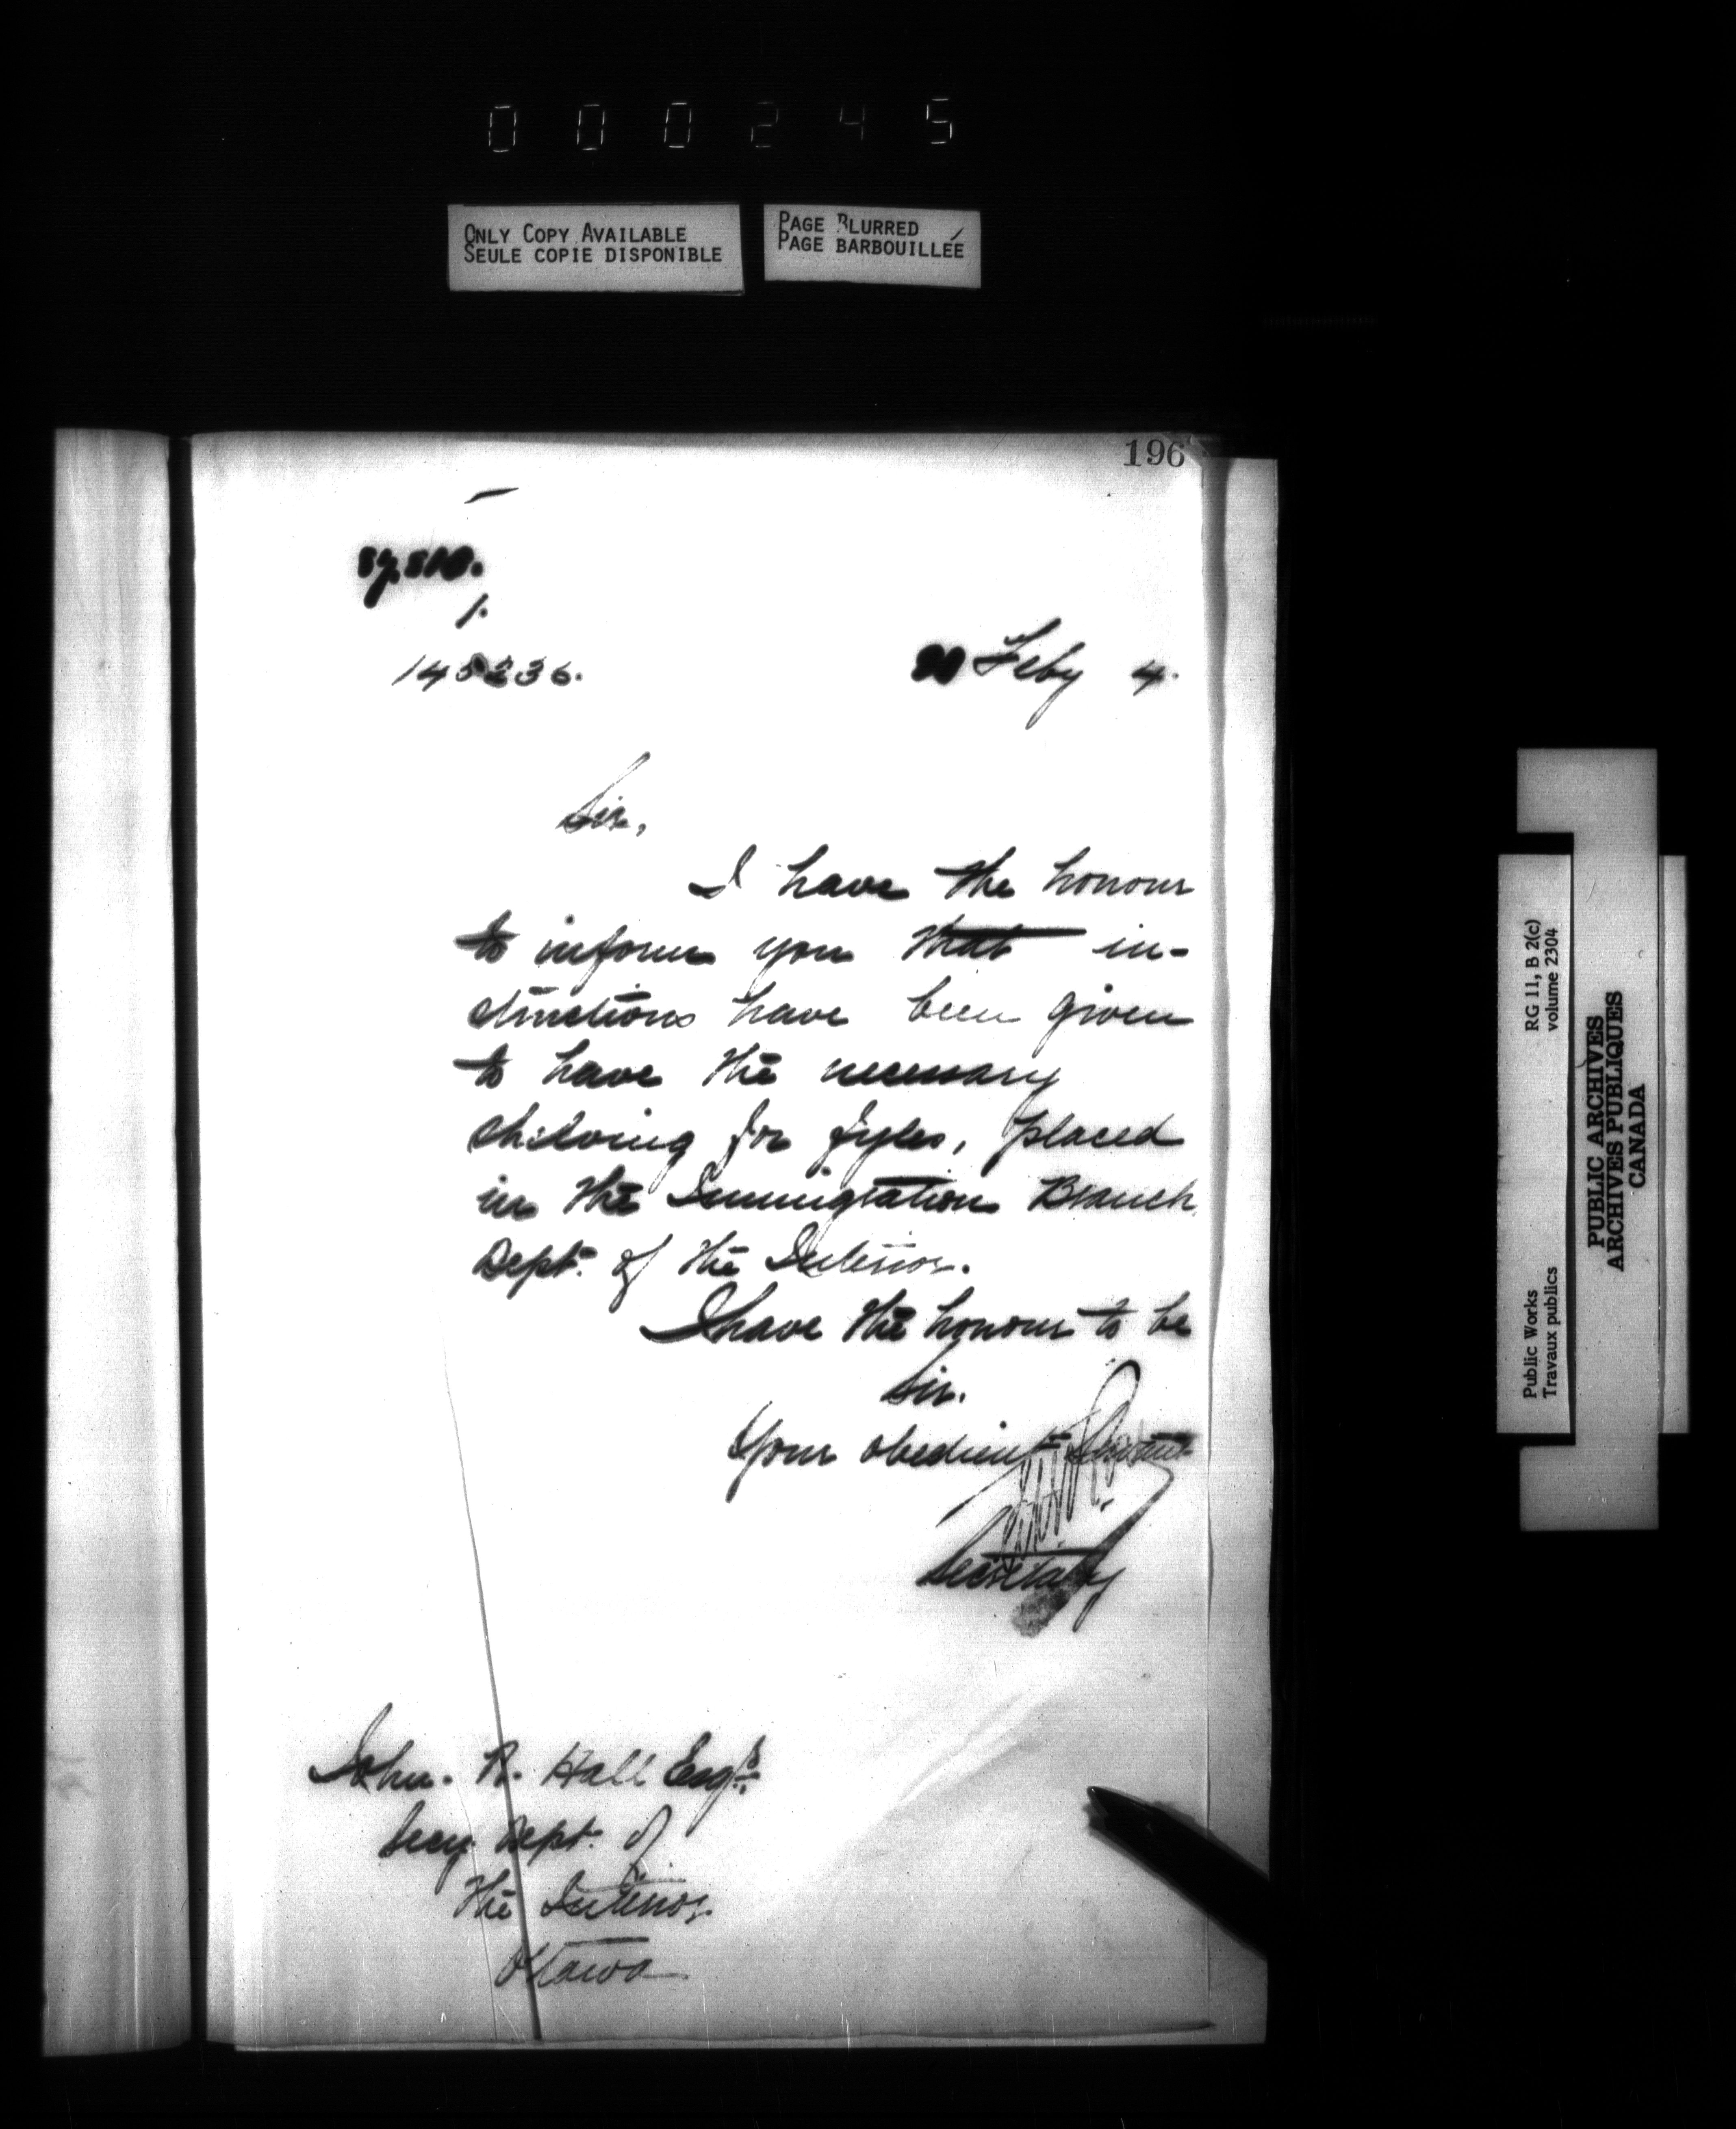 000245
ONLY COPY AVAILABLE
SEULE COPIE DISPONIBLE
PAGE BLURRED
PAGE BARBOUILLÉE
196
1.
145236.
Feby 4.
Sir,
I have the honour
to inform you that in-
structions have been given
to have the necessary
shelving for fyles, placed
in the Immigration Branch
Dept. of the Interior.
I have the honour to be
Sir.
Your obedient Servant
Secretary
John. R. Hall Esqre.
Secy Dept. of
the Interior
Ottawa
Public Works
Travaux publics
RG 11, B 2(c)
volume 2304
PUBLIC ARCHIVES
ARCHIVES PUBLIQUES
CANADA